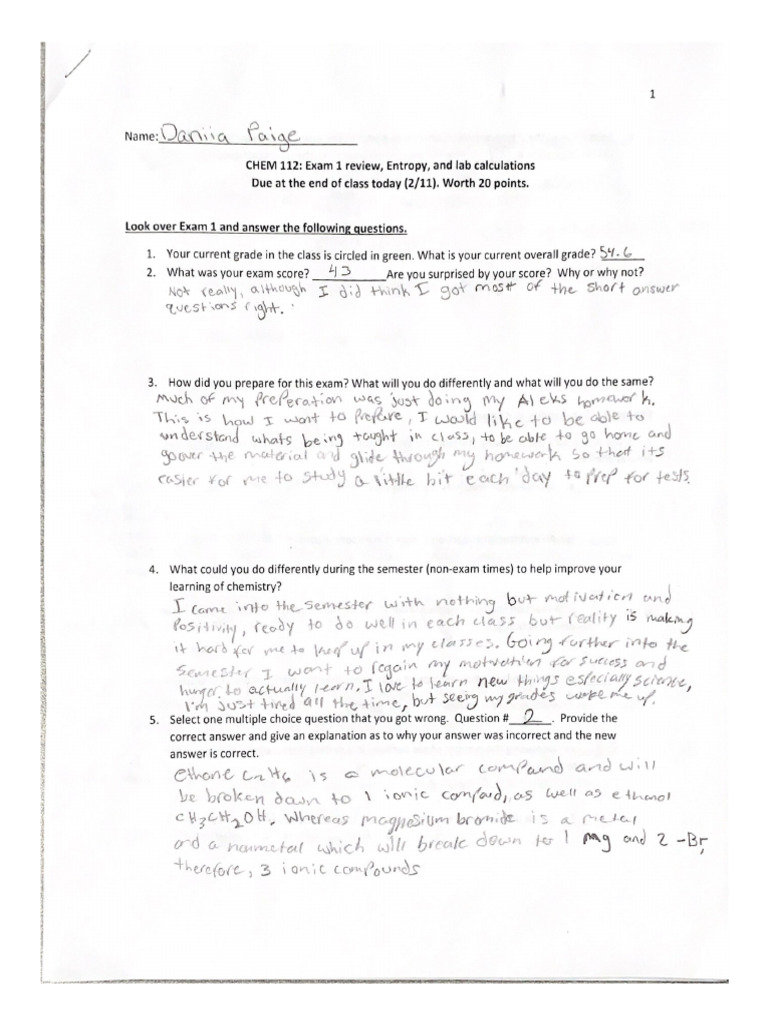 1
Name: Daniia Paige
CHEM 112: Exam 1 review, Entropy, and lab calculations
Due at the end of class today (2/11). Worth 20 points.
Look over Exam 1 and answer the following questions.
1. Your current grade in the class is circled in green. What is your current overall grade? 54.6
2. What was your exam score? 43 Are you surprised by your score? Why or why not?
Not really, although I did think I got most of the short answer
questions right.
3. How did you prepare for this exam? What will you do differently and what will you do the same?
Much of my preperation was just doing my Aleks homework.
This is how I want to prepare, I would like to be able to
understand whats being taught in class, to be able to go home and
go over the material and glide through my homework so that its
easier for me to study a little bit each day to prep for tests.
4. What could you do differently during the semester (non-exam times) to help improve your
learning of chemistry?
I came into the semester with nothing but motivation and
Positivity, ready to do well in each class but reality is making
it hard for me to keep up in my classes. Going further into the
semester I want to regain my motivation for success and
hunger to actually learn. I love to learn new things especially science,
I'm just tired all the time, but seeing my grades woke me up.
5. Select one multiple choice question that you got wrong. Question # 2 . Provide the
correct answer and give an explanation as to why your answer was incorrect and the new
answer is correct.
ethane C2H6 is a molecular compound and will
be broken down to 1 ionic compound, as well as ethanol
CH3CH2OH. Whereas magnesium bromide is a metal
and a nonmetal which will break down to 1 Mg and 2 -Br,
therefore, 3 ionic compounds